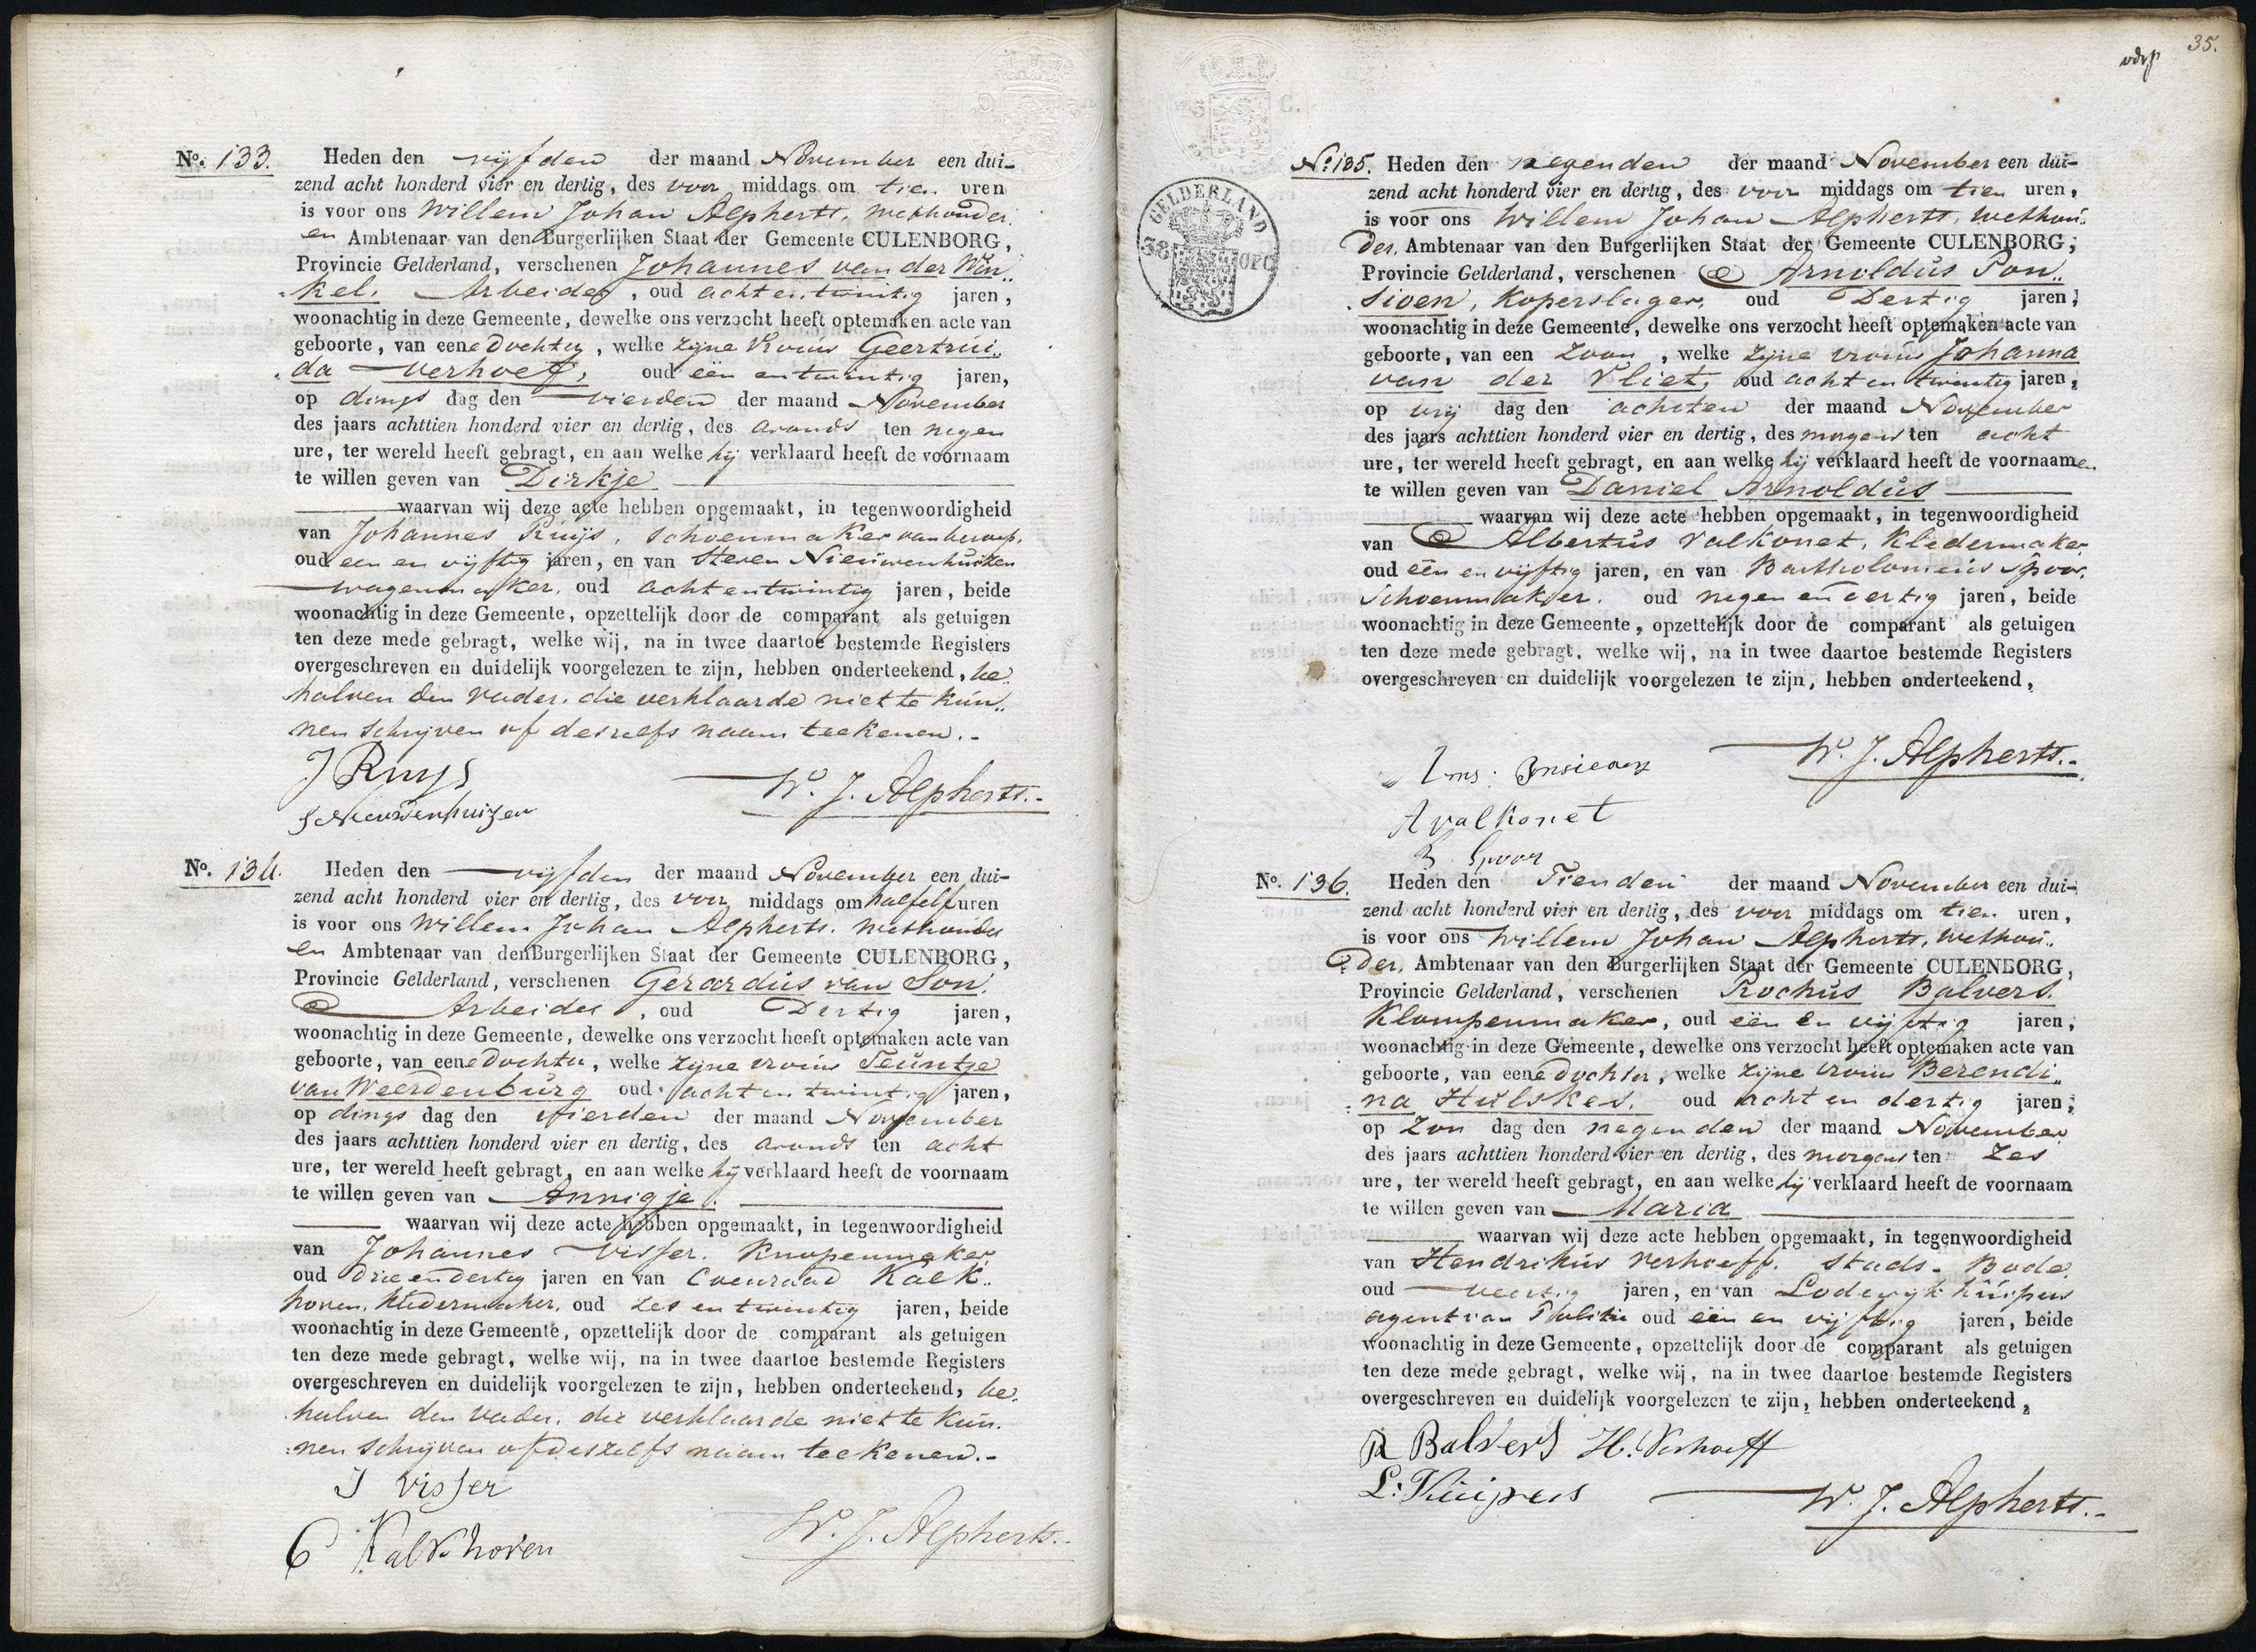 No. 133. Heden den vijfden der maand November een dui-
zend acht honderd vier en dertig, des voor middags om tien uren
is voor ons Willem Johan Alpherts, Wethouder
en Ambtenaar van den Burgerlijken Staat der Gemeente CULENBORG,
Provincie Gelderland, verschenen Johannes van der Win„
„kel. Arbeider, oud acht en twintig jaren,
woonachtig in deze Gemeente, dewelke ons verzocht heeft optemaken acte van
geboorte, van eene dochter, welke zijne Vrouw Geertrui„
„da Verhoef, oud een en twintig jaren,
op dings dag den vierden der maand November
des jaars achttien honderd vier en dertig, des avonds ten negen
ure, ter wereld heeft gebragt, en aan welke hij verklaard heeft de voornaam
te willen geven van Dirkje
waarvan wij deze acte hebben opgemaakt, in tegenwoordigheid
van Johannes Ruijs, schoenmaker van beroep,
oud een en vijftig jaren, en van Steven Nieuwenhuizen
wagenmaker, oud acht en twintig jaren, beide
woonachtig in deze Gemeente, opzettelijk door de comparant als getuigen
ten deze mede gebragt, welke wij, na in twee daartoe bestemde Registers
overgeschreven en duidelijk voorgelezen te zijn, hebben onderteekend, be„
halven den Vader, die verklaarde niet te kun„
nen schrijven of deszelfs naam teekenen.-
J Ruys
W. J. Alpherts.-
S Nieuwenhuizen
No. 134. Heden den vijfden der maand November een dui-
zend acht honderd vier en dertig, des voor middags om half elf uren
is voor ons Willem Johan Alpherts, Wethouder
en Ambtenaar van den Burgerlijken Staat der Gemeente CULENBORG,
Provincie Gelderland, verschenen Gerardus van Son.
Arbeider, oud Dertig jaren,
woonachtig in deze Gemeente, dewelke ons verzocht heeft optemaken acte van
geboorte, van eene dochter, welke zijne vrouw Teuntje
van Weerdenburg oud acht en twintig jaren,
op dings dag den vierden der maand November
des jaars achttien honderd vier en dertig, des avonds ten acht
ure, ter wereld heeft gebragt, en aan welke hij verklaard heeft de voornaam
te willen geven van Annigje.
waarvan wij deze acte hebben opgemaakt, in tegenwoordigheid
van Johannes Visser. Knopenmaker
oud drie en dertig jaren en van Coenraad Kalk„
hoven, kledermaker, oud zes en twintig jaren, beide
woonachtig in deze Gemeente, opzettelijk door de comparant als getuigen
ten deze mede gebragt, welke wij, na in twee daartoe bestemde Registers
overgeschreven en duidelijk voorgelezen te zijn, hebben onderteekend, be„
halven den Vader, die verklaarde niet te kun„
nen schrijven of deszelfs naam teekenen.-
J visser
W. J. Alpherts.-
C Kalkhoven
35.
GELDERLAND
38 OPC
No. 135. Heden den negenden der maand November een dui-
zend acht honderd vier en dertig, des voor middags om tien uren,
is voor ons Willem Johan Alpherts, Wethou„
der, Ambtenaar van den Burgerlijken Staat der Gemeente CULENBORG,
Provincie Gelderland, verschenen Arnoldus Pon„
sioen, Koperslager, oud Dertig jaren,
woonachtig in deze Gemeente, dewelke ons verzocht heeft optemaken acte van
geboorte, van een Zoon, welke zijne vrouw Johanna
van der Vliet, oud acht en twintig jaren,
op vrij dag den achsten der maand November
des jaars achttien honderd vier en dertig, des morgens ten acht
ure, ter wereld heeft gebragt, en aan welke hij verklaard heeft de voornaamen
te willen geven van Daniel Arnoldus
waarvan wij deze acte hebben opgemaakt, in tegenwoordigheid
van Albertus Valkonet, Kledermaker
oud één en vijftig jaren, en van Bartholomeus Spoor,
Schoenmakser. oud negen en veertig jaren, beide
woonachtig in deze Gemeente, opzettelijk door de comparant als getuigen
ten deze mede gebragt, welke wij, na in twee daartoe bestemde Registers
overgeschreven en duidelijk voorgelezen te zijn, hebben onderteekend,
W. J. Alpherts.-
A valkonet
B Spoor
No. 136. Heden den Tienden der maand November een dui-
zend acht honderd vier en dertig, des voor middags om tien uren,
is voor ons Willem Johan Alpherts, Wethou„
der, Ambtenaar van den Burgerlijken Staat der Gemeente CULENBORG,
Provincie Gelderland, verschenen Rochus Balvers.
Klompenmaker, oud één en vijftig jaren,
woonachtig in deze Gemeente, dewelke ons verzocht heeft optemaken acte van
geboorte, van eene dochter, welke zijne vrouw Berendi„
„na Hulsker. oud acht en dertig jaren,
op Zon dag den negenden der maand November
des jaars achttien honderd vier en dertig, des morgens ten zes
ure, ter wereld heeft gebragt, en aan welke hij verklaard heeft de voornaam
te willen geven van Maria
waarvan wij deze acte hebben opgemaakt, in tegenwoordigheid
van Hendrikus Verhoeff. Stads-Bode
oud veertig jaren, en van Lodewyk Kuipers
agent van Politie oud één en vijftig jaren, beide
woonachtig in deze Gemeente, opzettelijk door de comparant als getuigen
ten deze mede gebragt, welke wij, na in twee daartoe bestemde Registers
overgeschreven en duidelijk voorgelezen te zijn, hebben onderteekend,
R Balvers H. Verhoeff
L: Kuipers
W. J. Alpherts.-